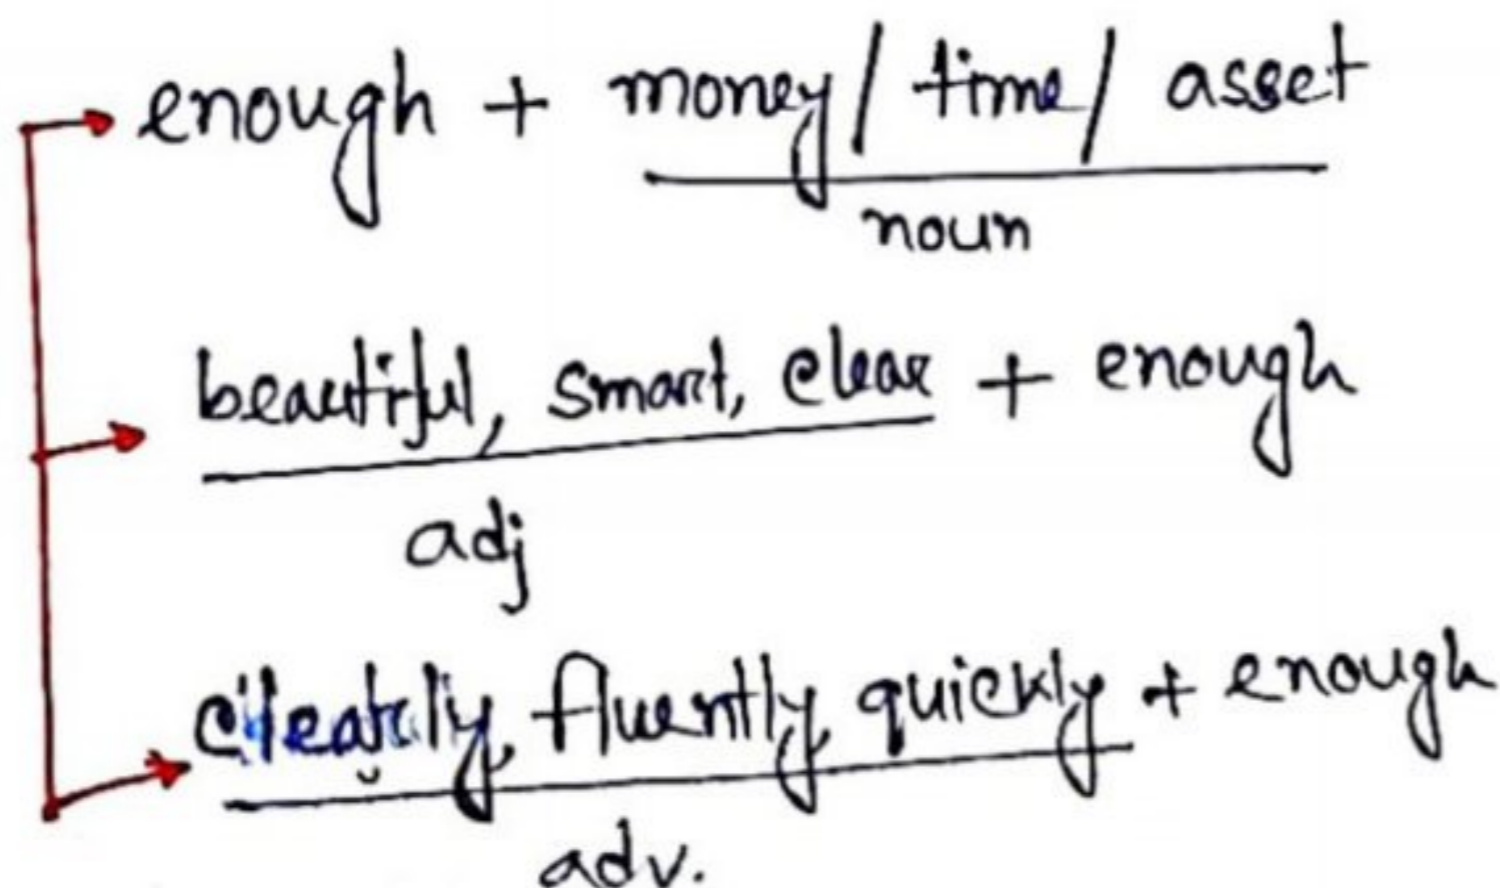 enough + money / time / asset
noun
beautiful, smart, clear + enough
adj
clearly, fluently, quickly + enough
adv.